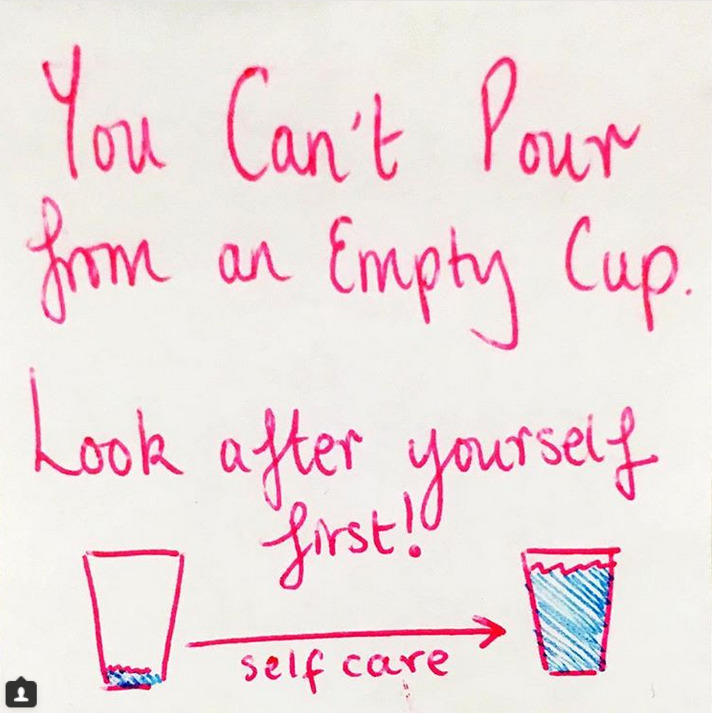 You Can't Pour
from an Empty Cup.
Look after yourself
first!
self care